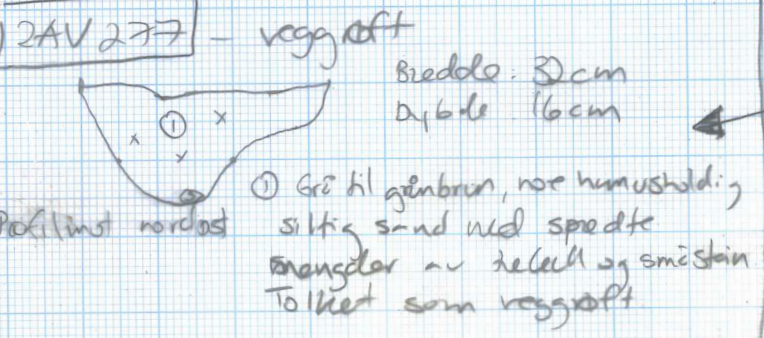 2AV277 - veggrøft
Bredde: 32cm
Dybde 16cm
①
Profil mot nordøst
① Grå til gråbrun, noe humusholdig
siltig sand med spredte
mengder av trekull og småstein
Tolket som veggrøft